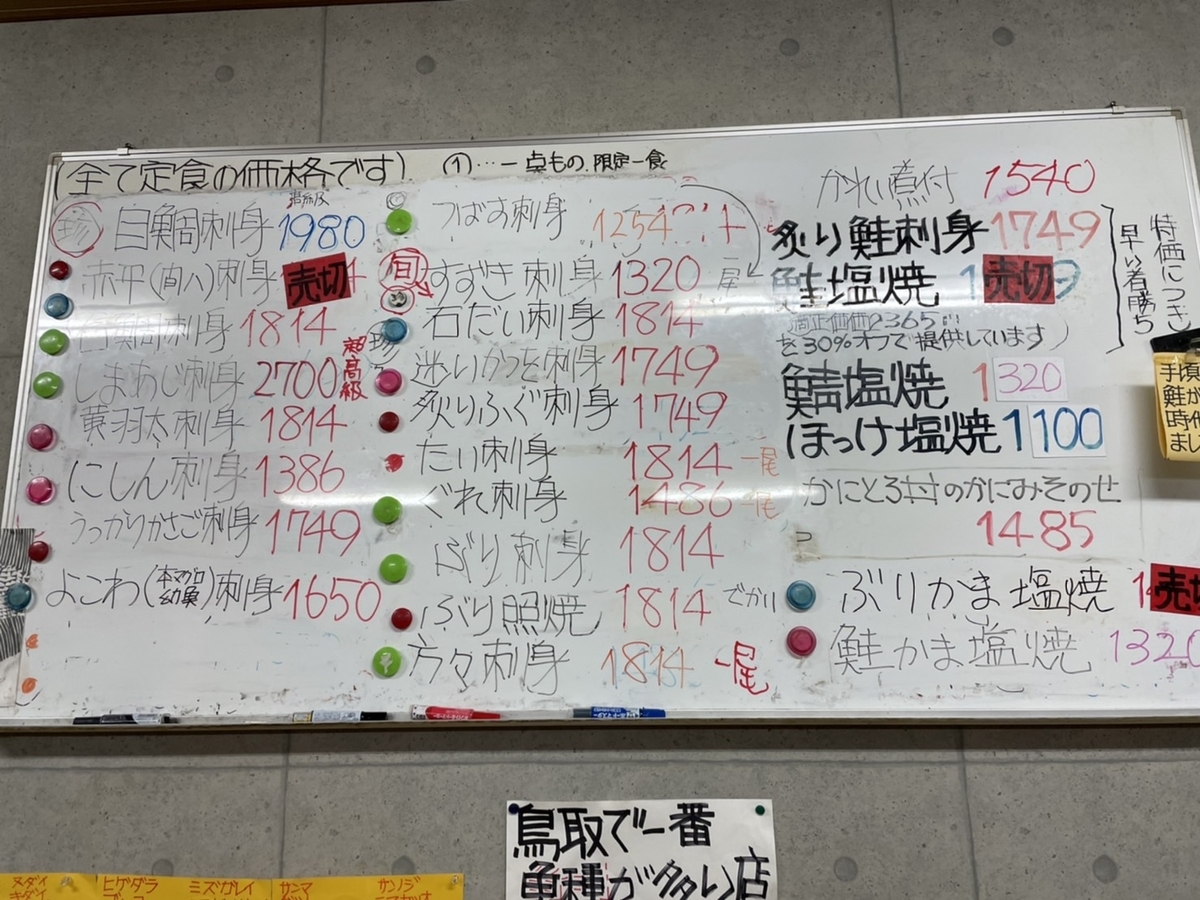 (全て定食の価格です) ①…一点もの、限定一食
珍 白鯛刺身 1980
赤平(間八)刺身 売切
刺身 1814
しまあじ刺身 2700 超高級
黄羽太刺身 1814
にしん刺身 1386
うっかりかさご刺身 1749
よこわ(本マグロ幼魚)刺身 1650
つばす刺身 1254
旬 すずき刺身 1320
石だい刺身 1814
珍
迷いかつを刺身 1749
炙りふぐ刺身 1749
たい刺身 1814 一尾
ぐれ刺身 1486 一尾
ぶり刺身 1814
ぶり照焼 1814 でかい
方々刺身 1814 一尾
かれい煮付 1540
炙り鮭刺身 1749
鮭塩焼 売切
適正価価2365
を30%オフで提供しています
特価につき
早い者勝ち
鯖塩焼 1320
ほっけ塩焼 1100
かにとろ丼のかにみそのせ
1485
ぶりかま塩焼 売切
鮭かま塩焼 1320
手頃
鮭が
時代
まし
鳥取で一番
魚種が多い店
ヌダイ ヒゲダラ ミズガレイ サンマ サンノジ
キダイ